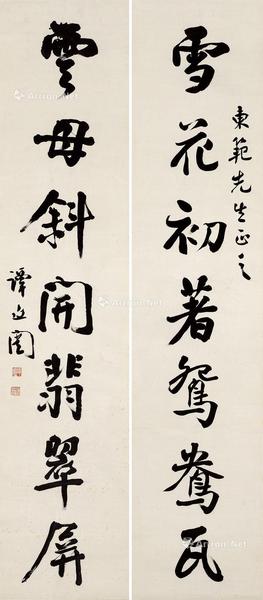 東範先生正之
雪花初著鴛鴦瓦
雲母斜開翡翠屏
譚延闓